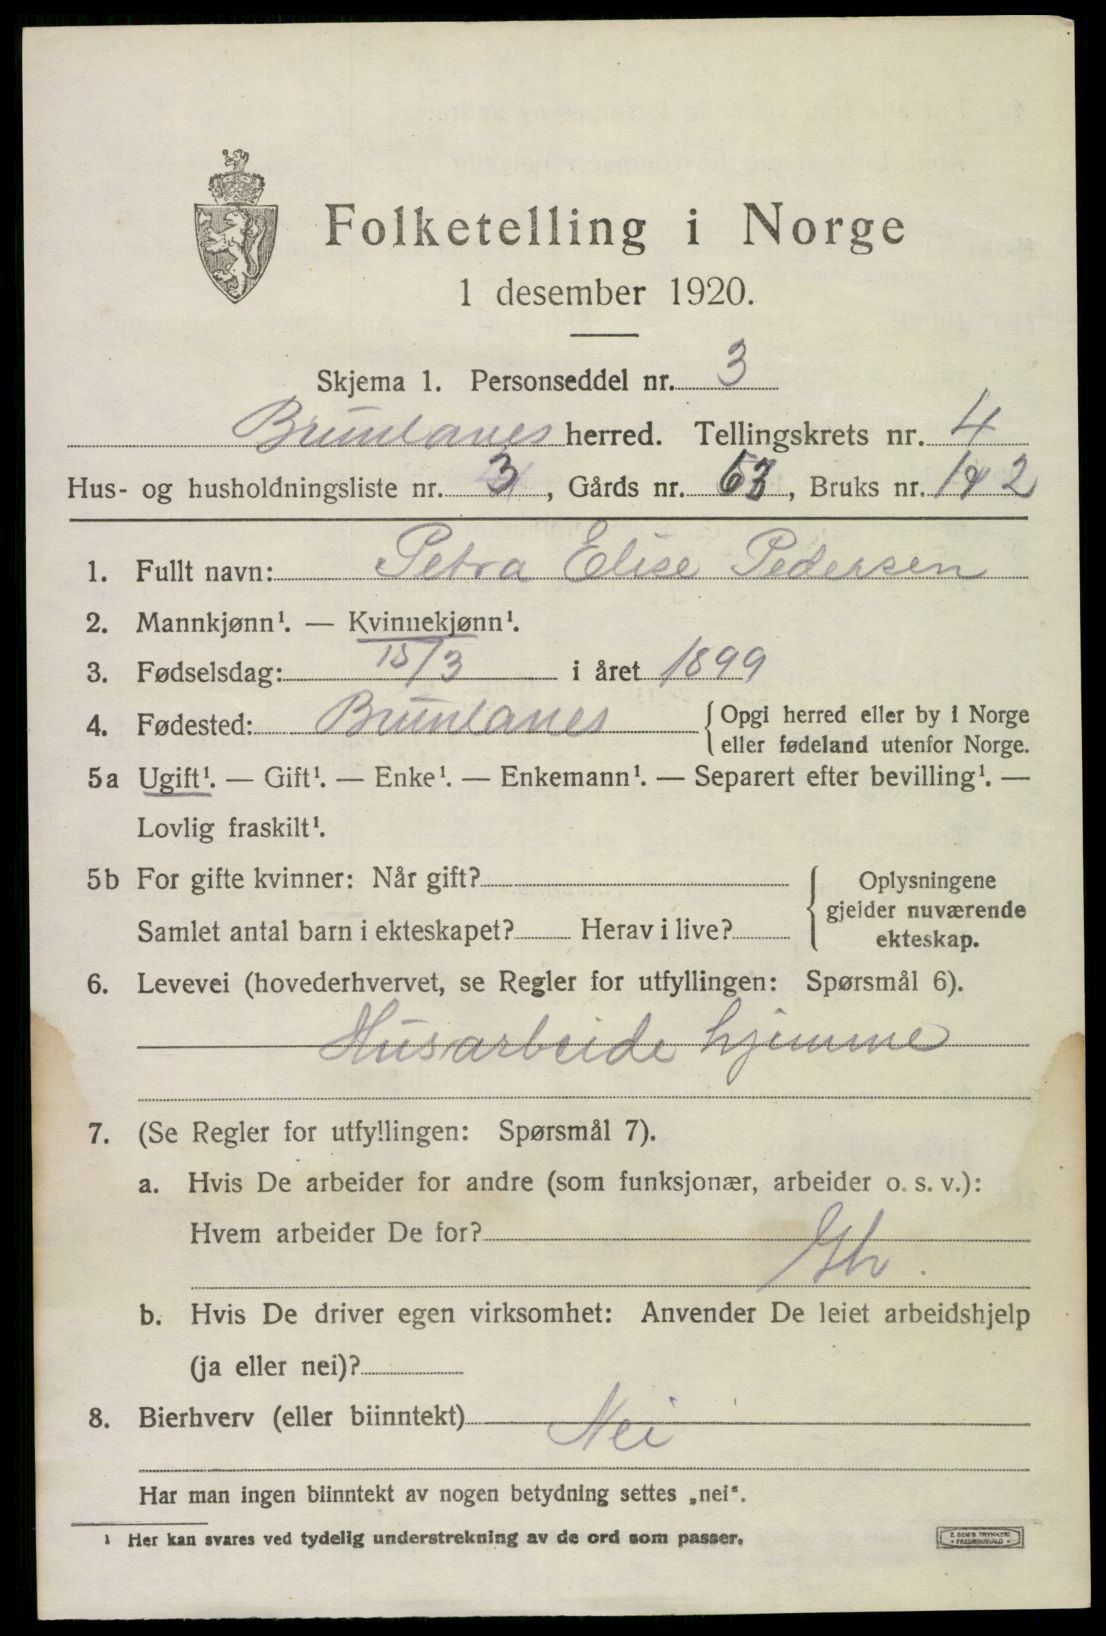 Folketelling i Norge
1 desember 1920.
Skjema 1. Personseddel nr. 3
Brunlanes herred. Tellingskrets nr. 4
Hus- og husholdningsliste nr. 3, Gårds nr. 63, Bruks nr. 1 2
1. Fullt navn: Petra Elise Pedersen
2. Mannkjønn¹. — Kvinnekjønn¹.
3. Fødselsdag: 15/3 i året 1899
4. Fødested: Brunlanes {Opgi herred eller by i Norge
eller fødeland utenfor Norge.
5a Ugift¹. — Gift¹. — Enke¹. — Enkemann¹. — Separert efter bevilling¹. —
Lovlig fraskilt¹.
5b For gifte kvinner: Når gift?
Samlet antal barn i ekteskapet? Herav i live?
Oplysningene
gjelder nuværende
ekteskap.
6. Levevei (hovederhvervet, se Regler for utfyllingen: Spørsmål 6).
Husarbeide hjemme
7. (Se Regler for utfyllingen: Spørsmål 7).
a. Hvis De arbeider for andre (som funksjonær, arbeider o. s. v.):
Hvem arbeider De for?
b. Hvis De driver egen virksomhet: Anvender De leiet arbeidshjelp
(ja eller nei)?
8. Bierhverv (eller biinntekt) Nei
Har man ingen biinntekt av nogen betydning settes „nei“.
¹ Her kan svares ved tydelig understrekning av de ord som passer.